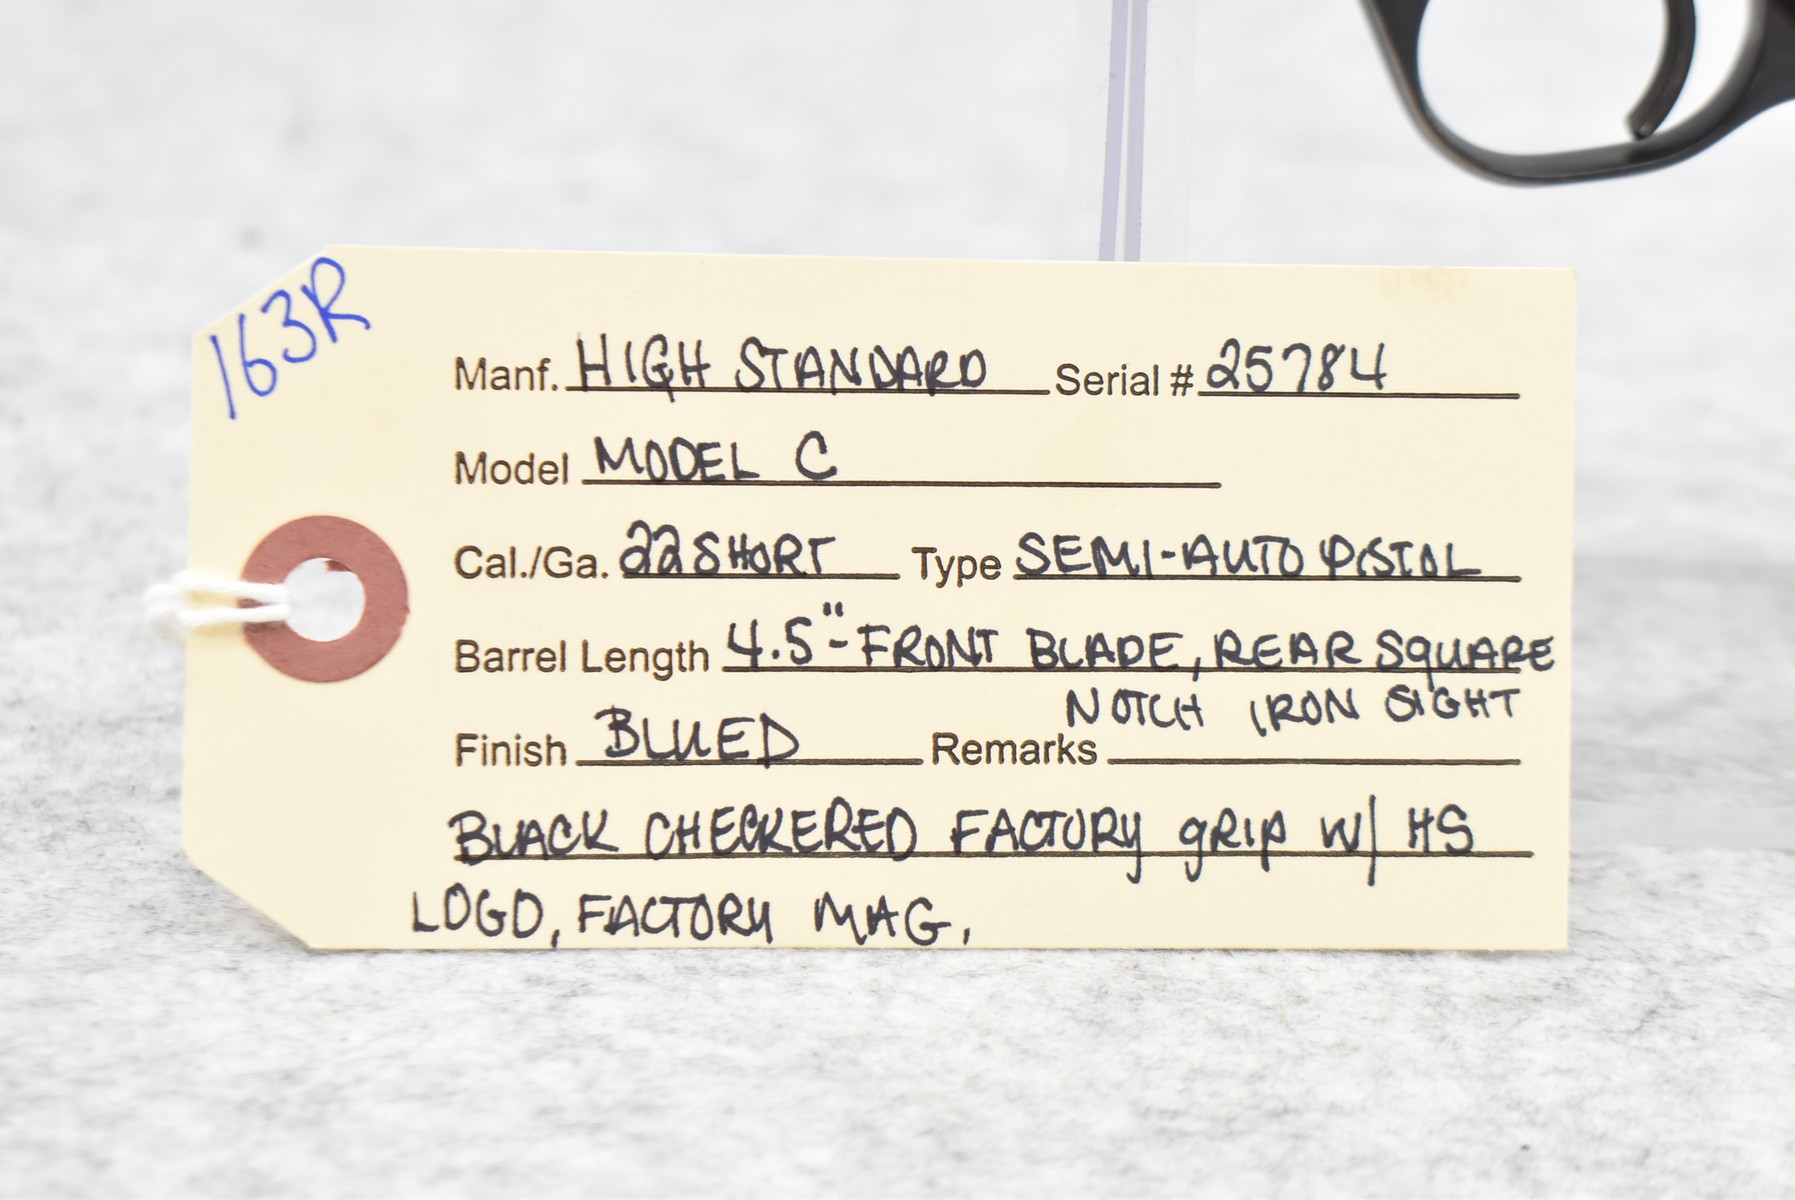 163R
Manf. HIGH STANDARD Serial # 25784
Model MODEL C
Cal./Ga. 22 SHORT Type SEMI-AUTO PISTOL
Barrel Length 4.5"-FRONT BLADE, REAR SQUARE
NOTCH IRON SIGHT
Finish BLUED Remarks
BLACK CHECKERED FACTORY GRIP W/ HS
LOGO, FACTORY MAG,